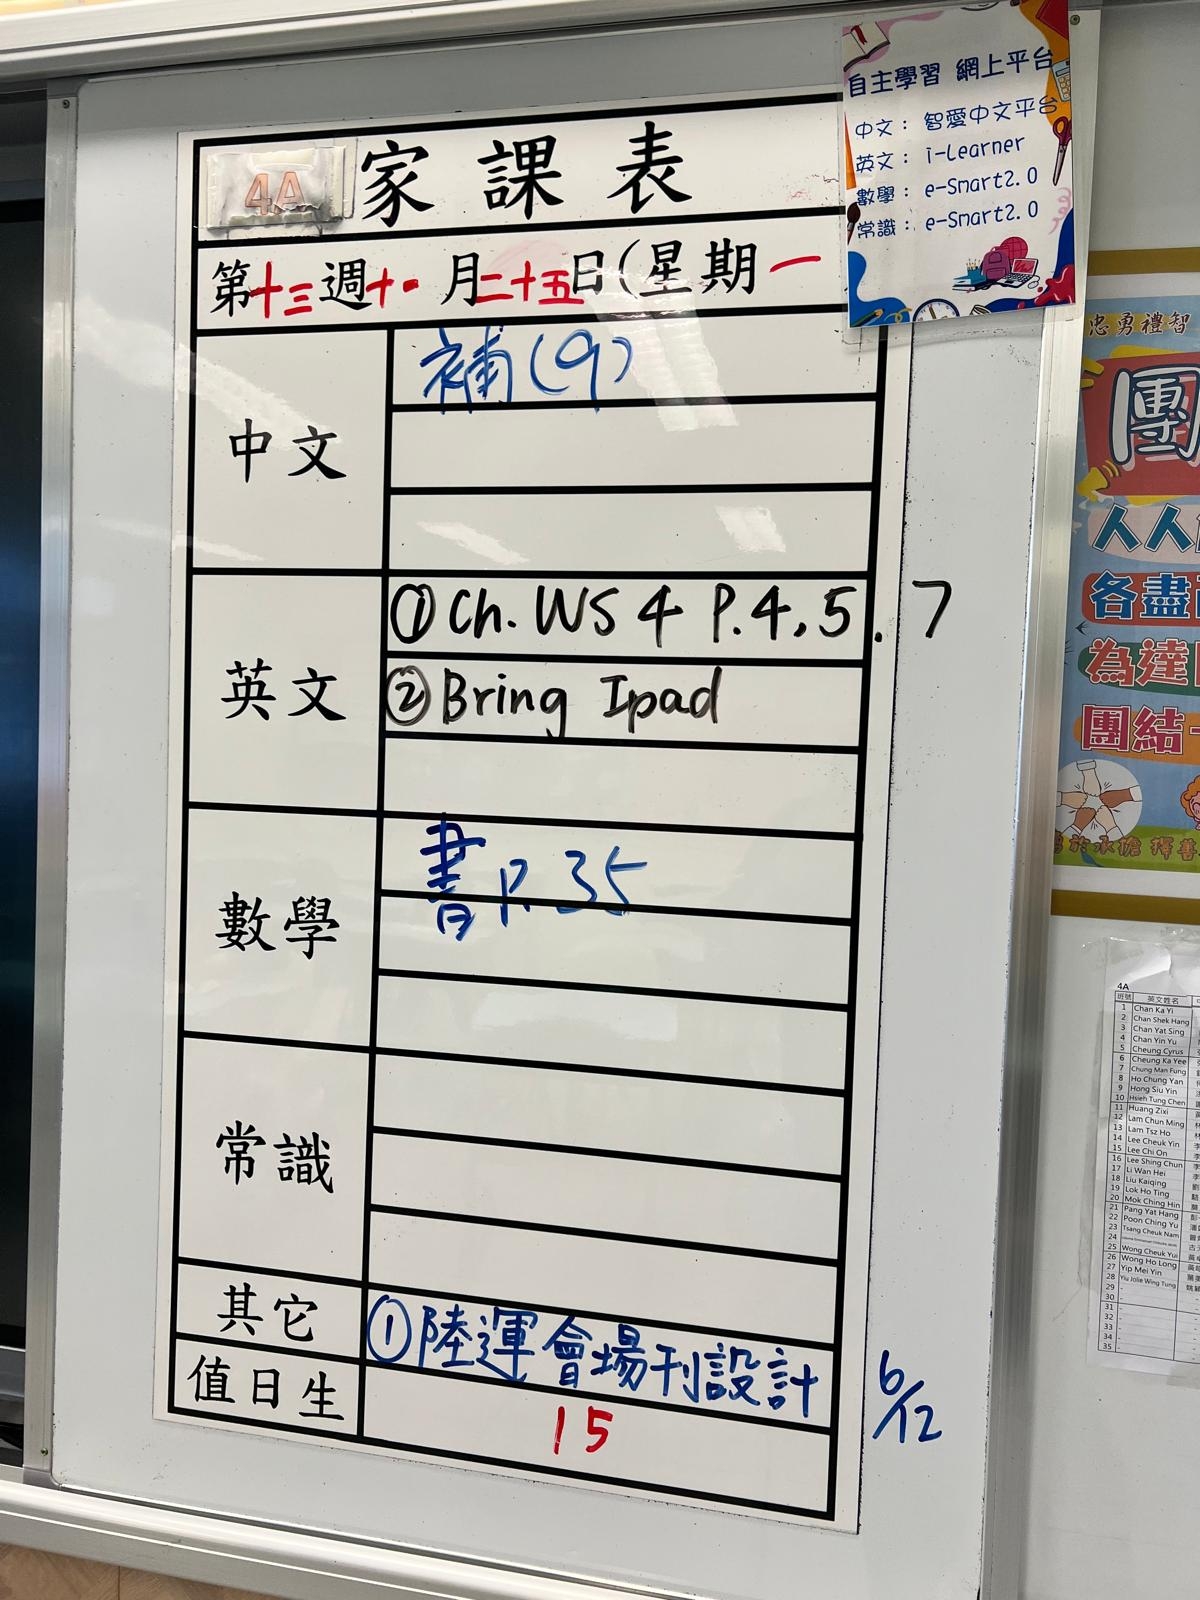 自主學習 網上平台
中文： 智愛中文平台
英文： i-Learner
數學： e-Smart2.0
常識： e-Smart2.0
4A 家課表
第十三週十一月二十五日(星期一
中文
補(9)
英文
① Ch. WS 4 P.4,5,7
② Bring Ipad
數學
書 P.35
常識
其它
① 陸運會場刊設計 6/12
值日生
15
忠勇禮智
團
人人
各盡
為達
團結一
4A
班號 英文姓名
1 Chan Ka Yi
2 Chan Shek Hang
3 Chan Yat Sing
4 Chan Yin Yu
5 Cheung Cyrus
6 Cheung Ka Yee
7 Chung Man Fung
8 Ho Chung Yan
9 Hong Siu Yin
10 Hsieh Tung Chen
11 Huang Zixi
12 Lam Chun Ming
13 Lam Tsz Ho
14 Lee Cheuk Yin
15 Lee Chi On
16 Lee Shing Chun
17 Li Wan Hei
18 Liu Kaiqing
19 Lok Ho Ting
20 Mok Ching Hin
21 Pang Yat Hang
22 Poon Ching Yu
23 Tsang Cheuk Nam
24
25 Wong Cheuk Yui
26 Wong Ho Long
27 Yip Mei Yin
28 Yiu Jolie Wing Tung
29 -
30 -
31 -
32 -
33 -
34 -
35 -